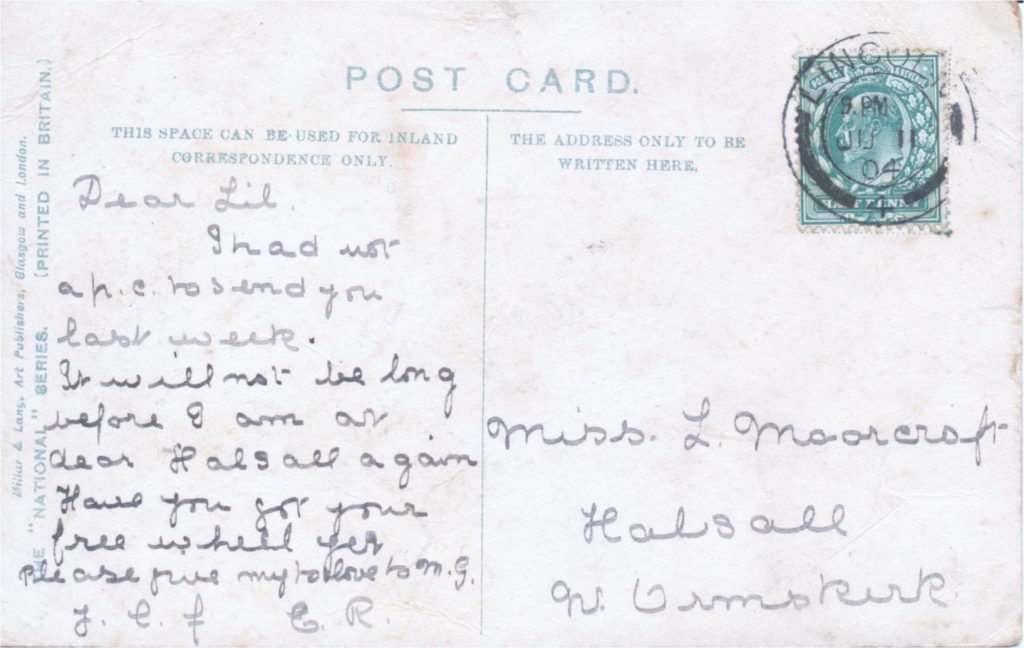 POST CARD.
THIS SPACE CAN BE USED FOR INLAND
CORRESPONDENCE ONLY.
THE ADDRESS ONLY TO BE
WRITTEN HERE.
Millar & Lang, Art Publishers, Glasgow and London.
THE "NATIONAL" SERIES. (PRINTED IN BRITAIN.)
LINCOLN
9. PM
JU 11
04
4
Dear Lil.
I had not
a p.c. to send you
last week.
It will not be long
before I am at
dear Halsall again
Have you got your
free wheel yet
Please give my love to M.G.
E. R.
Miss. L. Moorcroft
Halsall
Nr. Ormskirk.